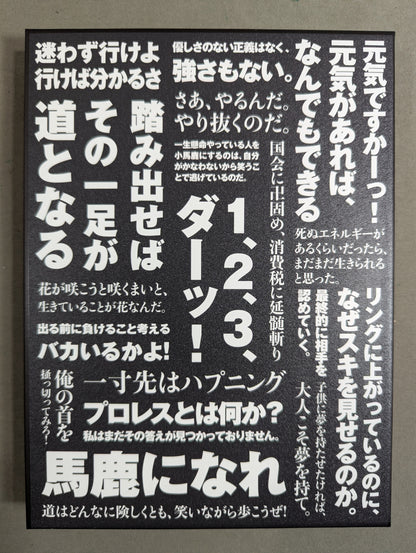 元気ですかーっ!
元気があれば、
なんでもできる
優しさのない正義はなく、
強さもない。
迷わず行けよ
行けば分かるさ
さあ、やるんだ。
やり抜くのだ。
一生懸命やっている人を
小馬鹿にするのは、自分
がかなわないから笑うこ
とで逃げているのだ。
踏み出せば
その一足が
道となる
国会に卍固め、消費税に延髄斬り
死ぬエネルギーが
あるくらいだったら、
まだまだ生きられる
と思った。
1、2、3、
ダーッ!
花が咲こうと咲くまいと、
生きていることが花なんだ。
出る前に負けること考える
バカいるかよ!
リングに上がっているのに、
なぜスキを見せるのか。
最終的に相手を
認めていく。
子供に夢を持たせたければ、
大人こそ夢を持て。
俺の首を
掻っ切ってみろ!
一寸先はハプニング
プロレスとは何か?
私はまだその答えが見つかっておりません。
馬鹿になれ
道はどんなに険しくとも、笑いながら歩こうぜ!